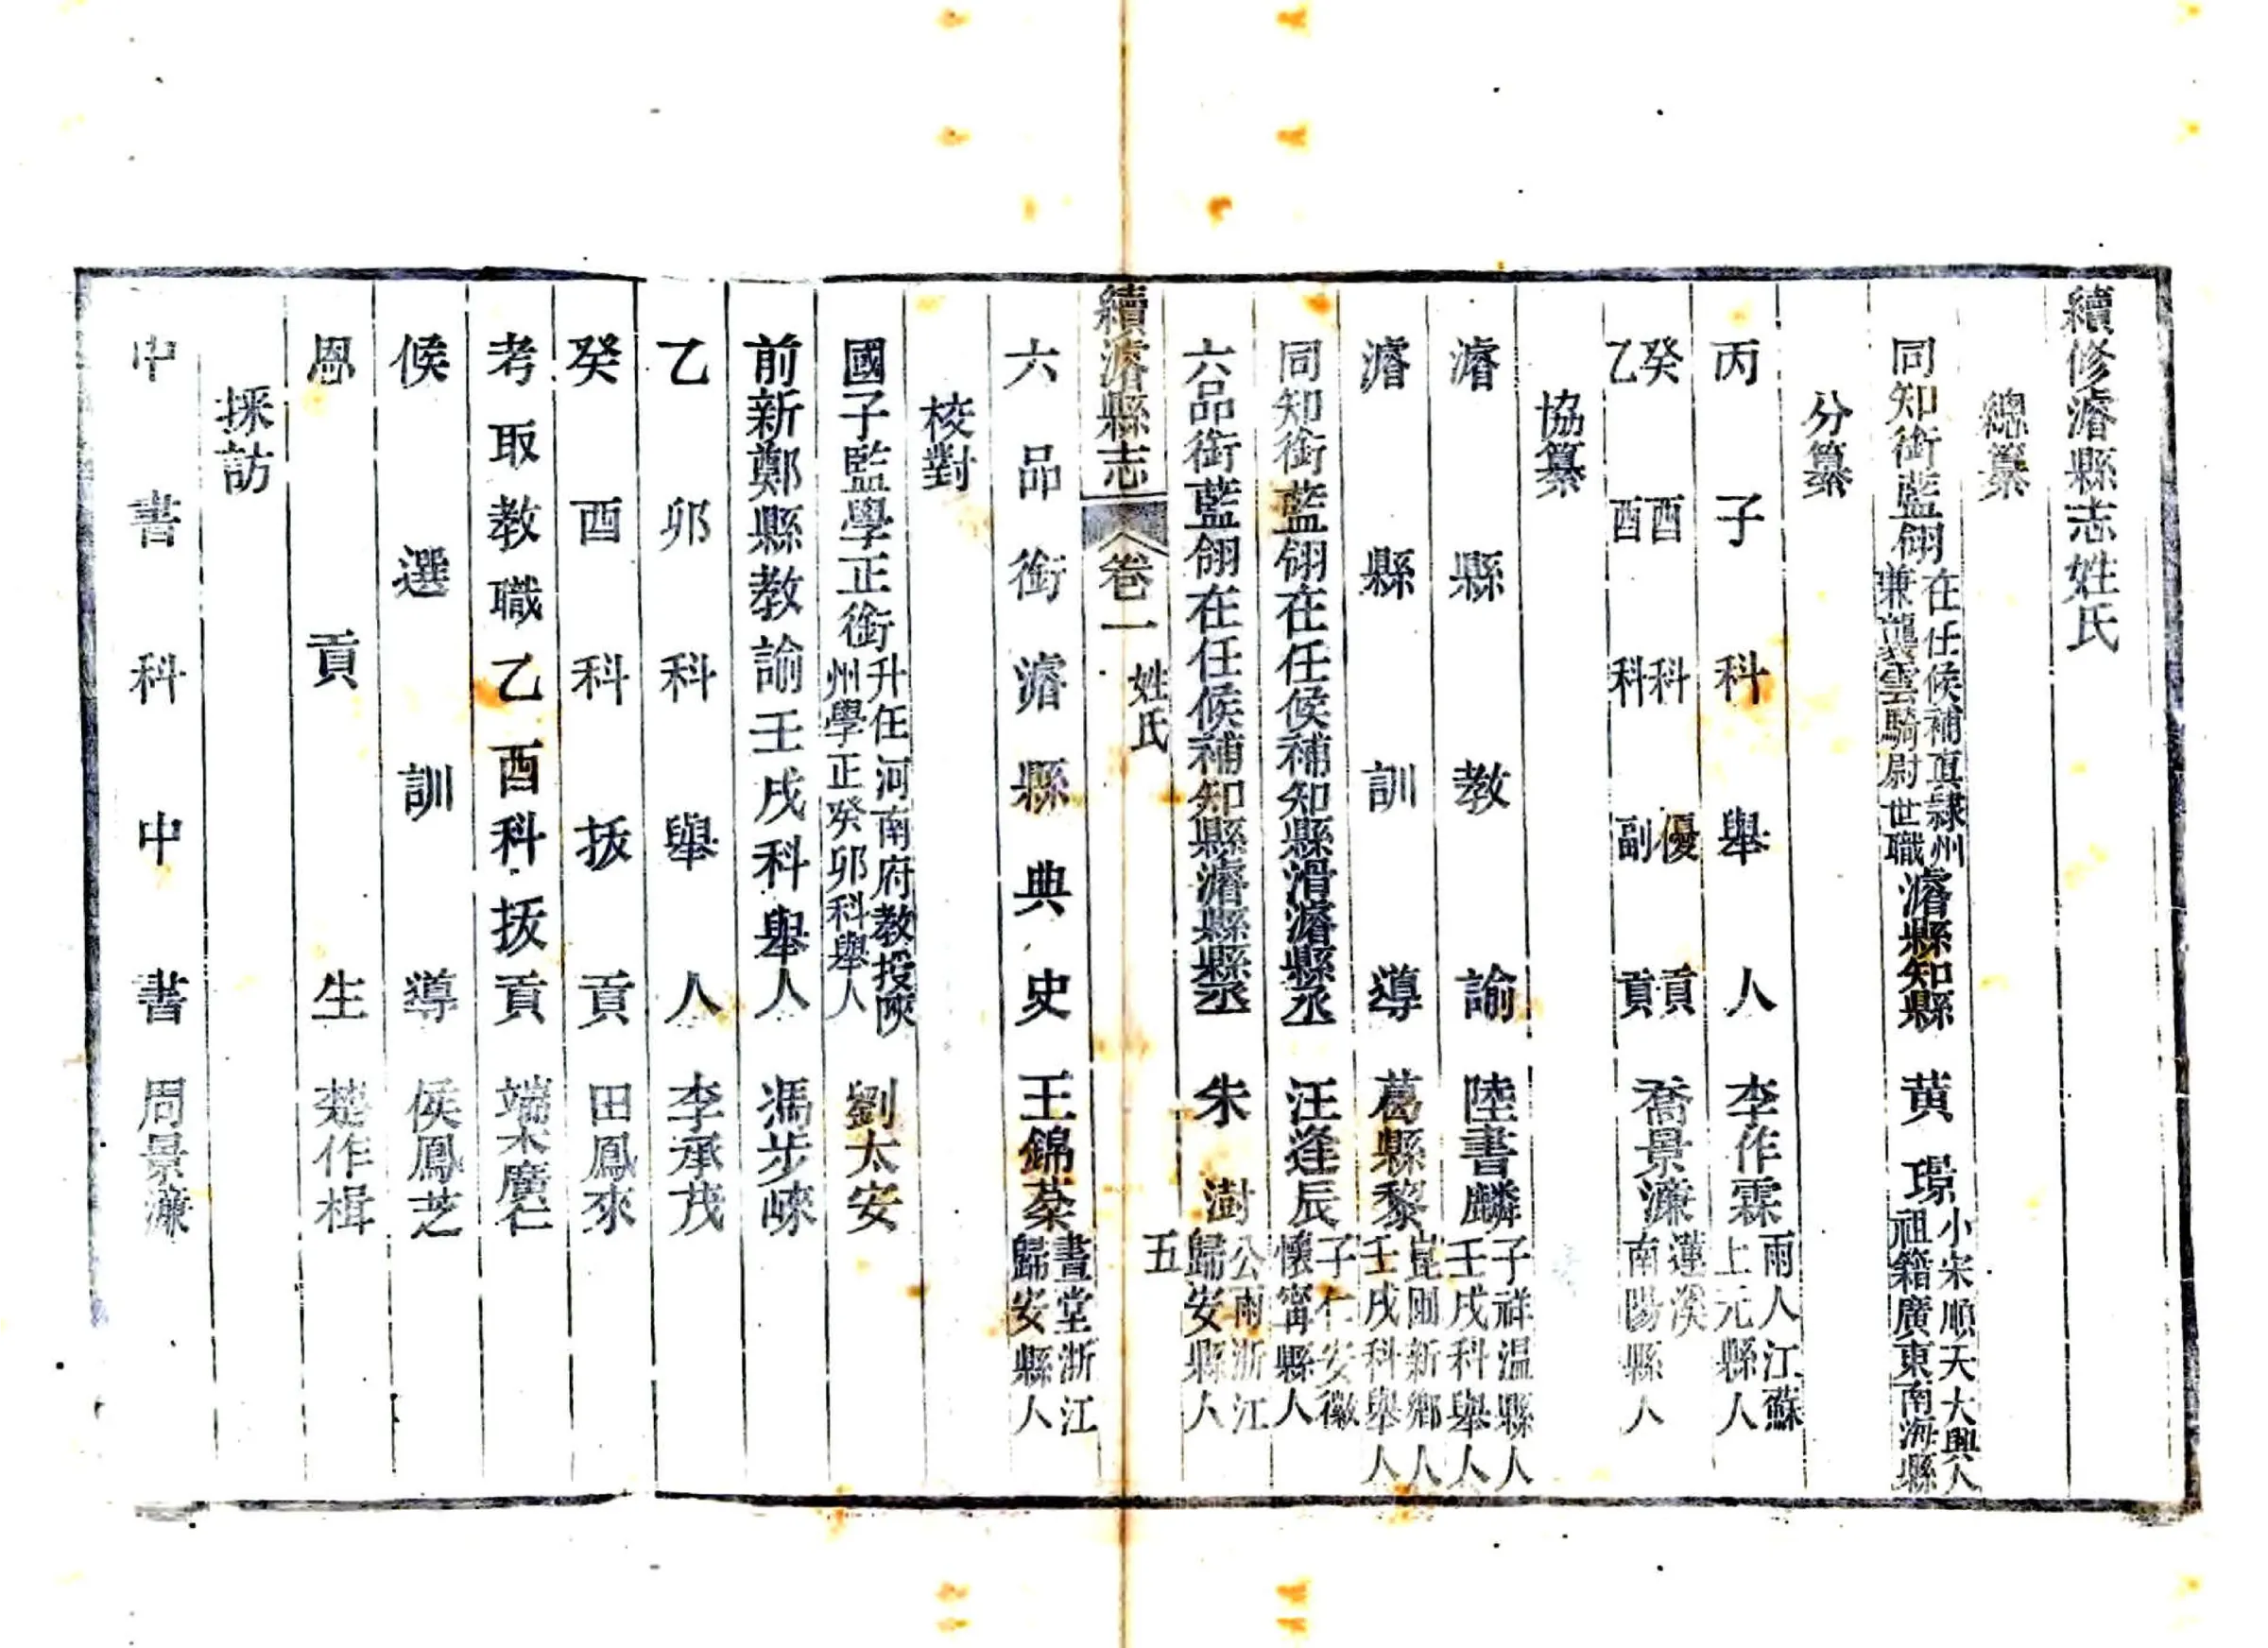 續修濬縣志姓氏
總纂
同知銜藍翎在任候補直隸州兼襲雲騎尉世職濬縣知縣黃璟小宋順天大興人祖籍廣東南海縣
分纂
丙子科舉人李作霖雨人江蘇上元縣人
癸酉科優貢乙酉科副貢喬景濂蓮溪南陽縣人
協纂
濬縣教諭陸書麟子祥温縣人壬戌科舉人
濬縣訓導葛縣黎崑圃新鄉人壬戌科舉人
同知銜藍翎在任候補知縣滑濬縣丞汪逢辰子仁安徽懷甯縣人
六品銜藍翎在任候補知縣濬縣縣丞朱澍公雨浙江歸安縣人
續濬縣志
卷一
姓氏
五
六品銜濬縣典史王錦棻晝堂浙江歸安縣人
校對
國子監學正銜升任河南府教授陝州學正癸卯科舉人劉太安
前新鄭縣教諭壬戌科舉人馮步崍
乙卯科舉人李承茂
癸酉科拔貢田鳳來
考取教職乙酉科拔貢端木廣仁
候選訓導侯鳳芝
恩貢生楚作楫
採訪
中書科中書周景濂